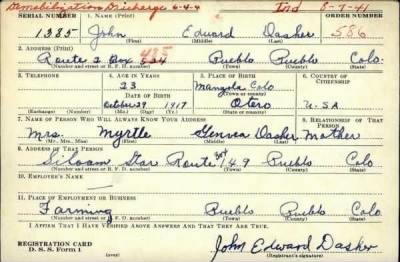 Demobilization Discharge 6-4-4 Ind 8-7-41
SERIAL NUMBER 1. Name (Print) ORDER NUMBER
1385 John Edward Dasher 586
(First) (Middle) (Last)
2. Address (Print) 435
Route 2 Box Pueblo Pueblo Colo.
(Number and street or R. F. D. number) (Town) (County) (State)
3. Telephone 4. Age in Years 5. Place of Birth 6. Country of Citizenship
23 Manzola Colo
Date of Birth (Town or county)
October 29 1917 Otero U.S.A
(Exchange) (Number) (Mo.) (Day) (Yr.) (State or country)
7. Name of Person Who Will Always Know Your Address 8. Relationship of That Person
Mrs. Myrtle Dasher Mother
(Mr., Mrs., Miss) (First) (Middle) (Last)
9. Address of That Person
Siloam Star Route 149 Pueblo Colo
(Number and street or R. F. D. number) (Town) (County) (State)
10. Employer's Name
11. Place of Employment or Business
Farming Pueblo Pueblo Colo
(Number and street or R. F. D. number) (Town) (County) (State)
I Affirm That I Have Verified Above Answers and That They Are True.
REGISTRATION CARD
D. S. S. Form 1
John Edward Dasher
(Registrant's signature)